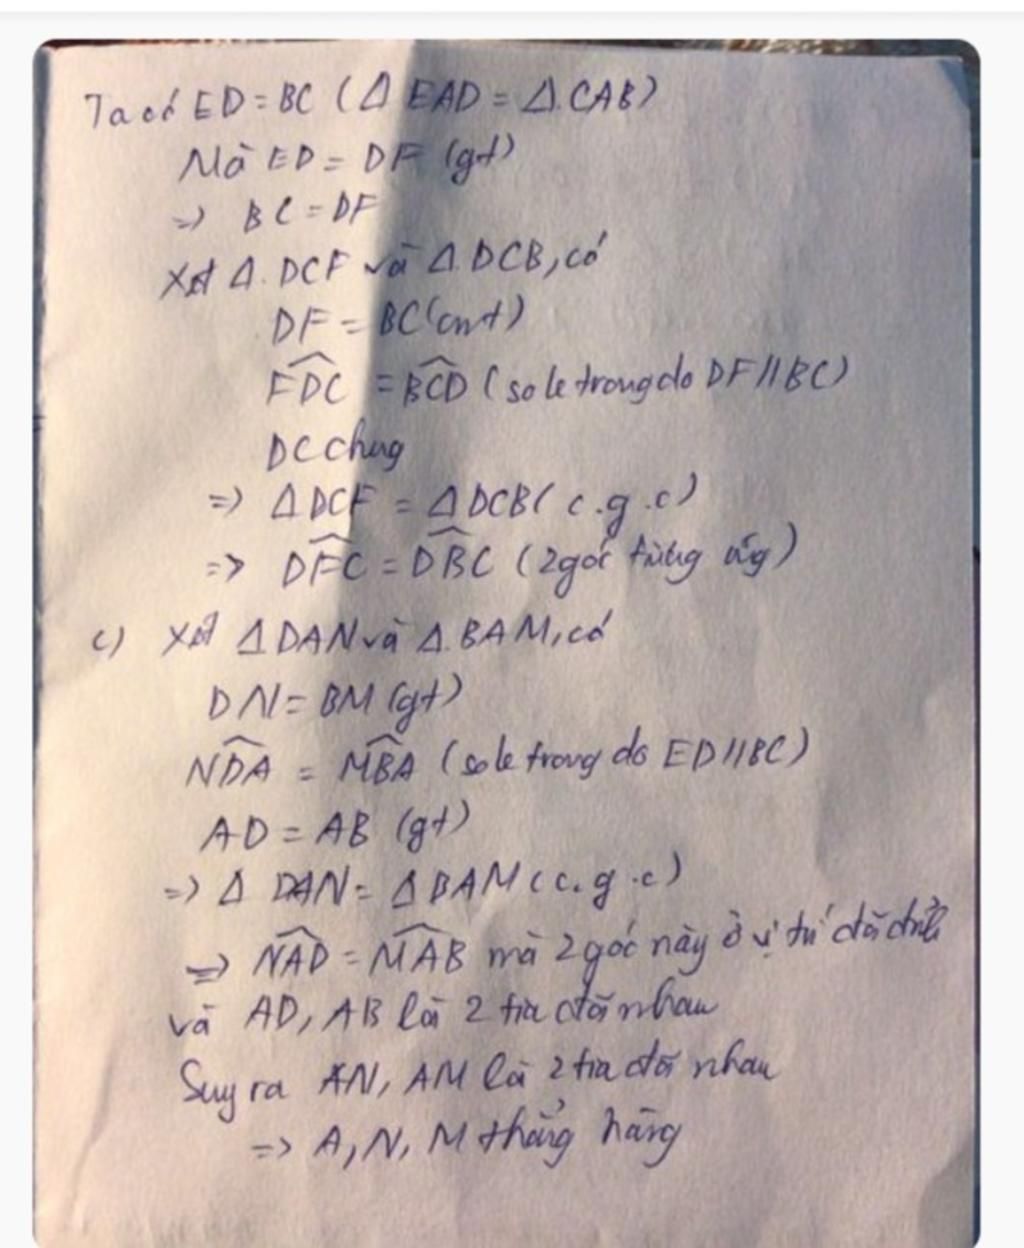 Ta có ED = BC (Δ EAD = Δ.CAB)
Mà ED = DF (gt)
=> BC = DF
Xét Δ.DCF và Δ.DCB, có
DF = BC (cmt)
\widehat{FDC} = \widehat{BCD} (so le trong do DF // BC)
DC chug
=> Δ DCF = Δ DCB ( c.g.c)
=> \widehat{DFC} = \widehat{DBC} (2 góc từng ứg)
c) Xét Δ DAN và Δ.BAM, có
DN = BM (gt)
\widehat{NDA} = \widehat{MBA} (so le trong do ED // BC)
AD = AB (gt)
=> Δ DAN = Δ BAM (c.g.c)
=> \widehat{NAD} = \widehat{MAB} mà 2 góc này ở vị trí đối đỉnh
và AD, AB là 2 tia đối nhau
Suy ra AN, AM là 2 tia đối nhau
=> A, N, M thẳng hàng